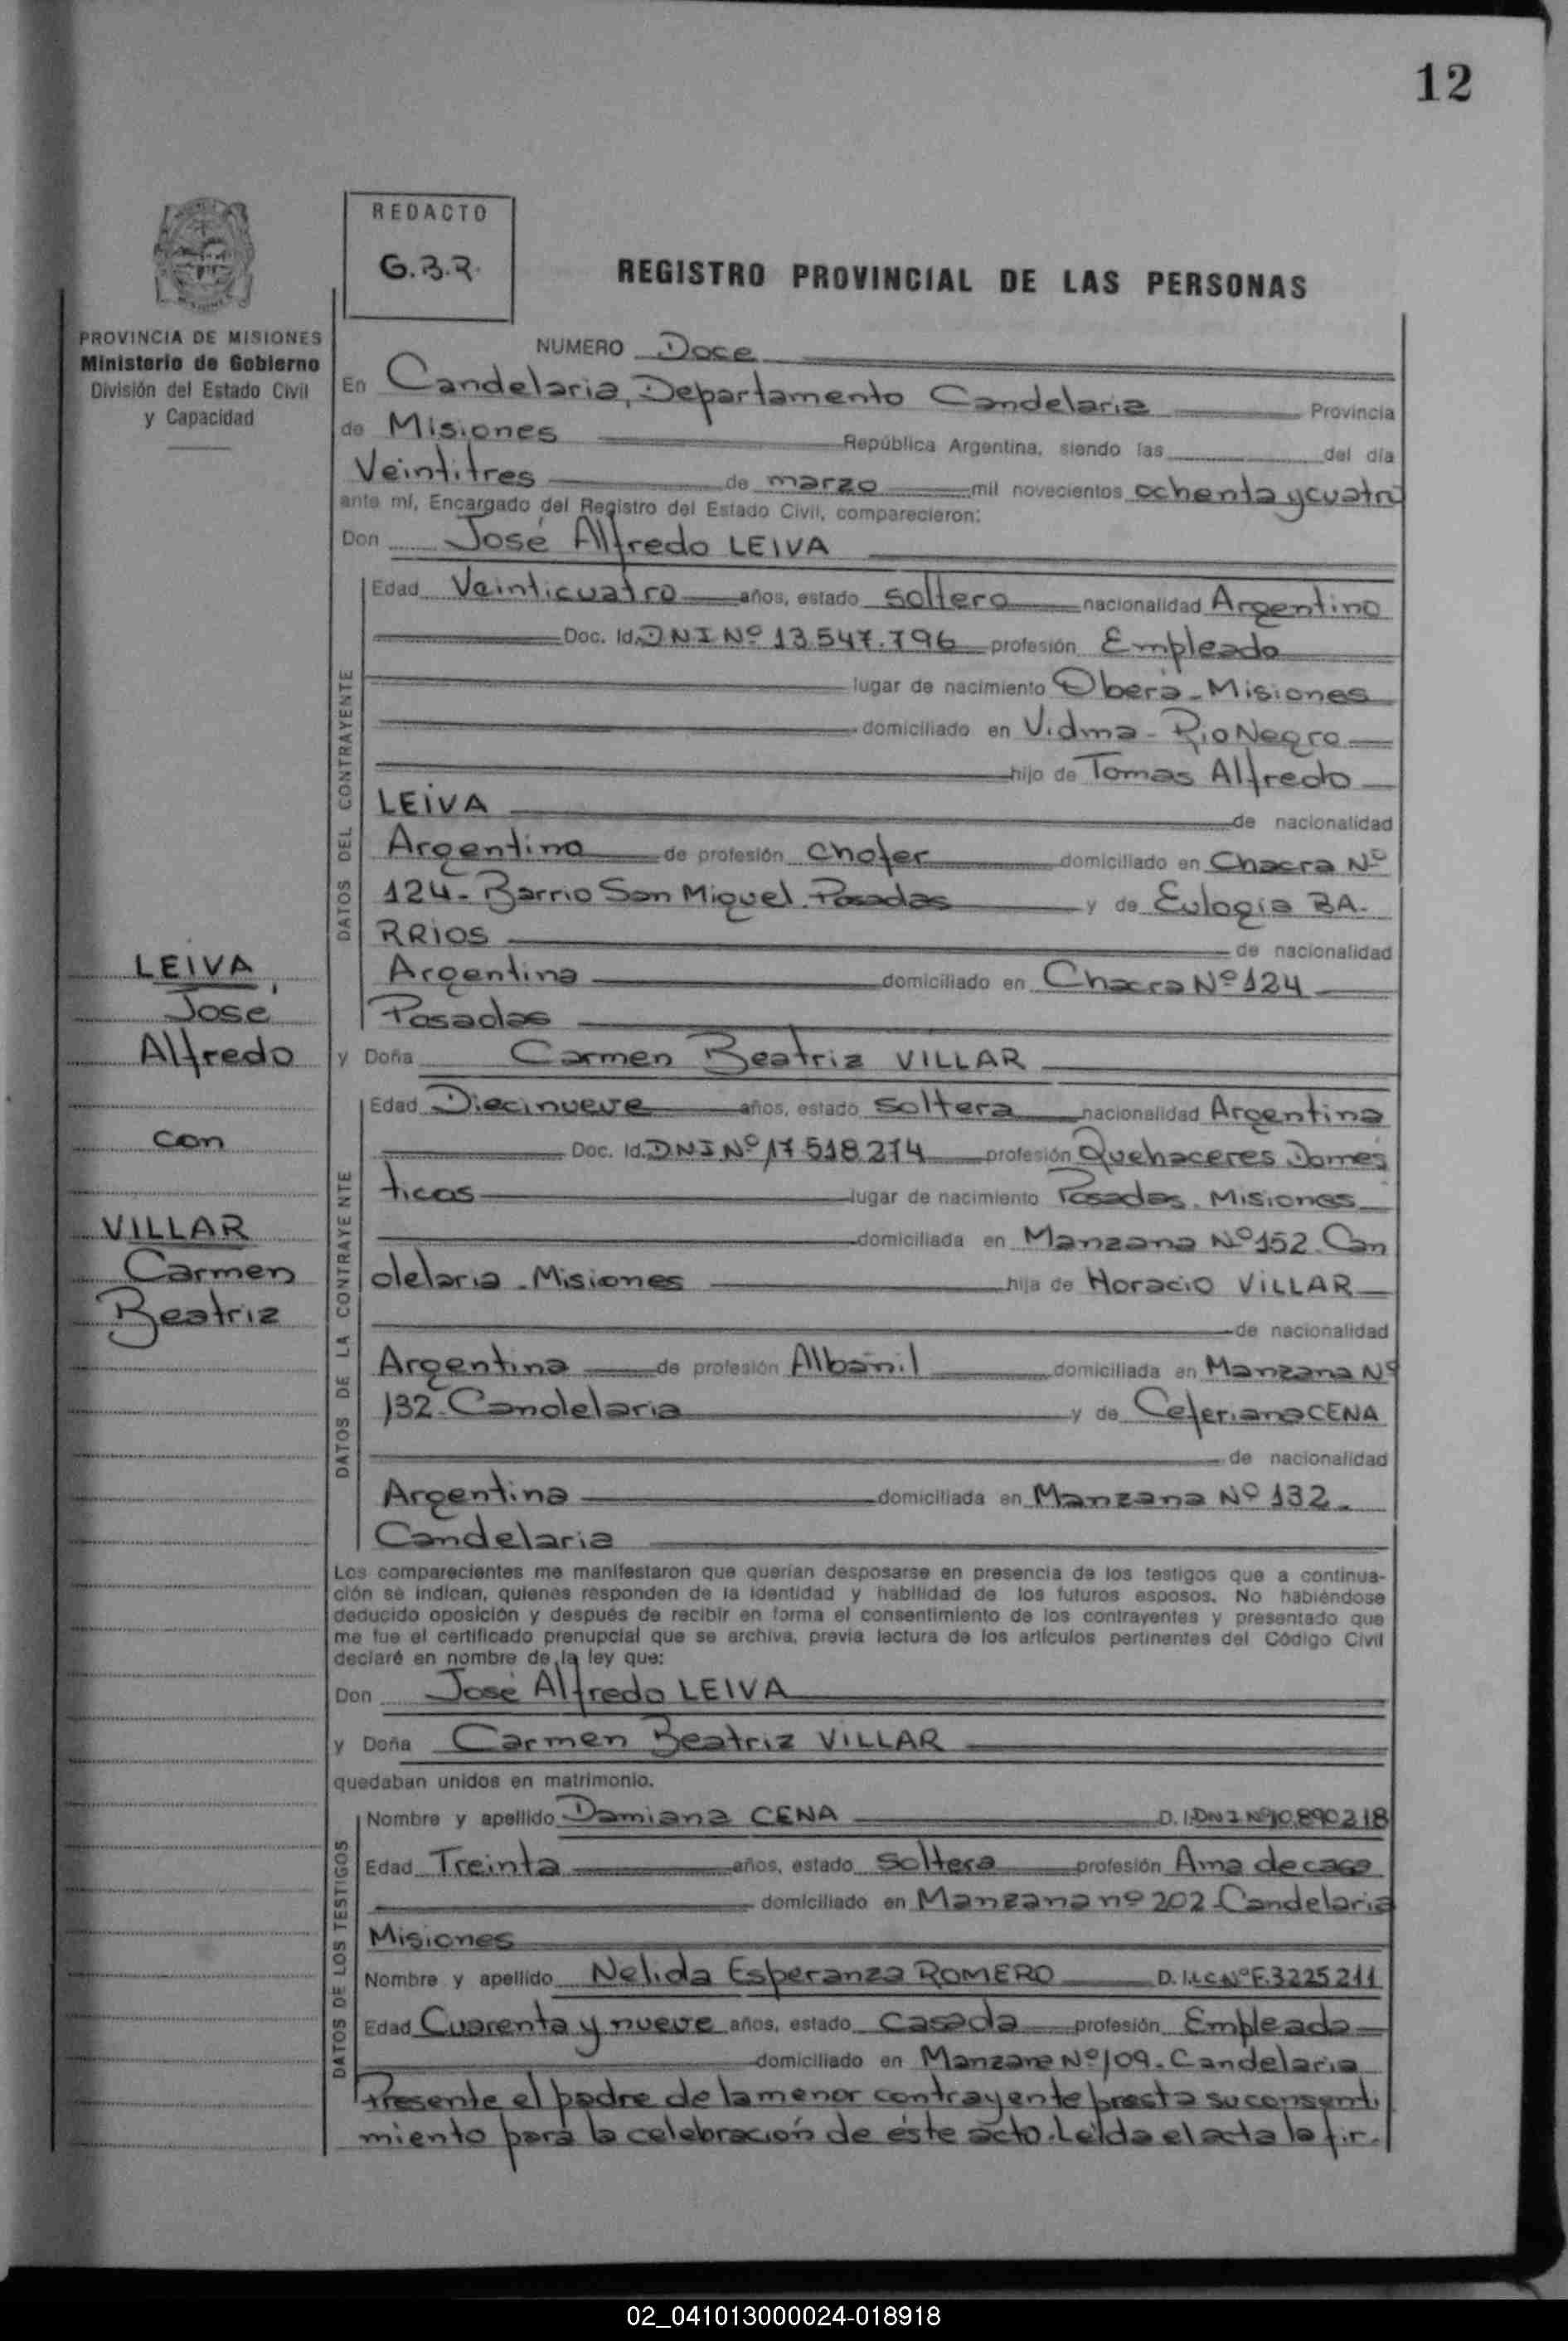 12
REDACTO
G.B.R.
REGISTRO PROVINCIAL DE LAS PERSONAS
PROVINCIA DE MISIONES
Ministerio de Gobierno
División del Estado Civil
y Capacidad
NUMERO Doce
En Candelaria, Departamento Candelaria Provincia
de Misiones República Argentina, siendo las del día
Veintitres de marzo mil novecientos ochenta y cuatro
ante mí, Encargado del Registro del Estado Civil, comparecieron:
Don José Alfredo LEIVA
DATOS DEL CONTRAYENTE
Edad Veinticuatro años, estado soltero nacionalidad Argentino
Doc. Id. DNI Nº 13.547.796 profesión Empleado
lugar de nacimiento Oberá - Misiones
domiciliado en Vidma - Rio Negro
hijo de Tomas Alfredo
LEIVA de nacionalidad
Argentino de profesión chofer domiciliado en Chacra Nº
124 - Barrio San Miguel. Posadas y de Eulogia BA-
RRIOS de nacionalidad
Argentina domiciliado en Chacra Nº 124
Posadas
LEIVA,
José
Alfredo
con
VILLAR
Carmen
Beatriz
y Doña Carmen Beatriz VILLAR
DATOS DE LA CONTRAYENTE
Edad Diecinueve años, estado soltera nacionalidad Argentina
Doc. Id. DNI Nº 17.518.274 profesión Quehaceres Domés
ticos lugar de nacimiento Posadas. Misiones
domiciliada en Manzana Nº 152. Can
delaria - Misiones hija de Horacio VILLAR
de nacionalidad
Argentina de profesión Albañil domiciliada en Manzana Nº
132. Candelaria y de Ceferiana CENA
de nacionalidad
Argentina domiciliada en Manzana Nº 132.
Candelaria
Los comparecientes me manifestaron que querían desposarse en presencia de los testigos que a continua-
ción se indican, quienes responden de la identidad y habilidad de los futuros esposos. No habiéndose
deducido oposición y después de recibir en forma el consentimiento de los contrayentes y presentado que
me fue el certificado prenupcial que se archiva, previa lectura de los artículos pertinentes del Código Civil
declaré en nombre de la ley que:
Don José Alfredo LEIVA
y Doña Carmen Beatriz VILLAR
quedaban unidos en matrimonio.
DATOS DE LOS TESTIGOS
Nombre y apellido Damiana CENA D. I. DNI Nº 10.890218
Edad Treinta años, estado soltera profesión Ama de casa
domiciliado en Manzana nº 202 - Candelaria
Misiones
Nombre y apellido Nelida Esperanza ROMERO D. I. LC Nº F.3225211
Edad Cuarenta y nueve años, estado casada profesión Empleada
domiciliado en Manzana Nº 109. Candelaria
Presente el padre de la menor contrayente presta su consenti
miento para la celebración de éste acto. Leída el acta la fir-
02_041013000024-018918